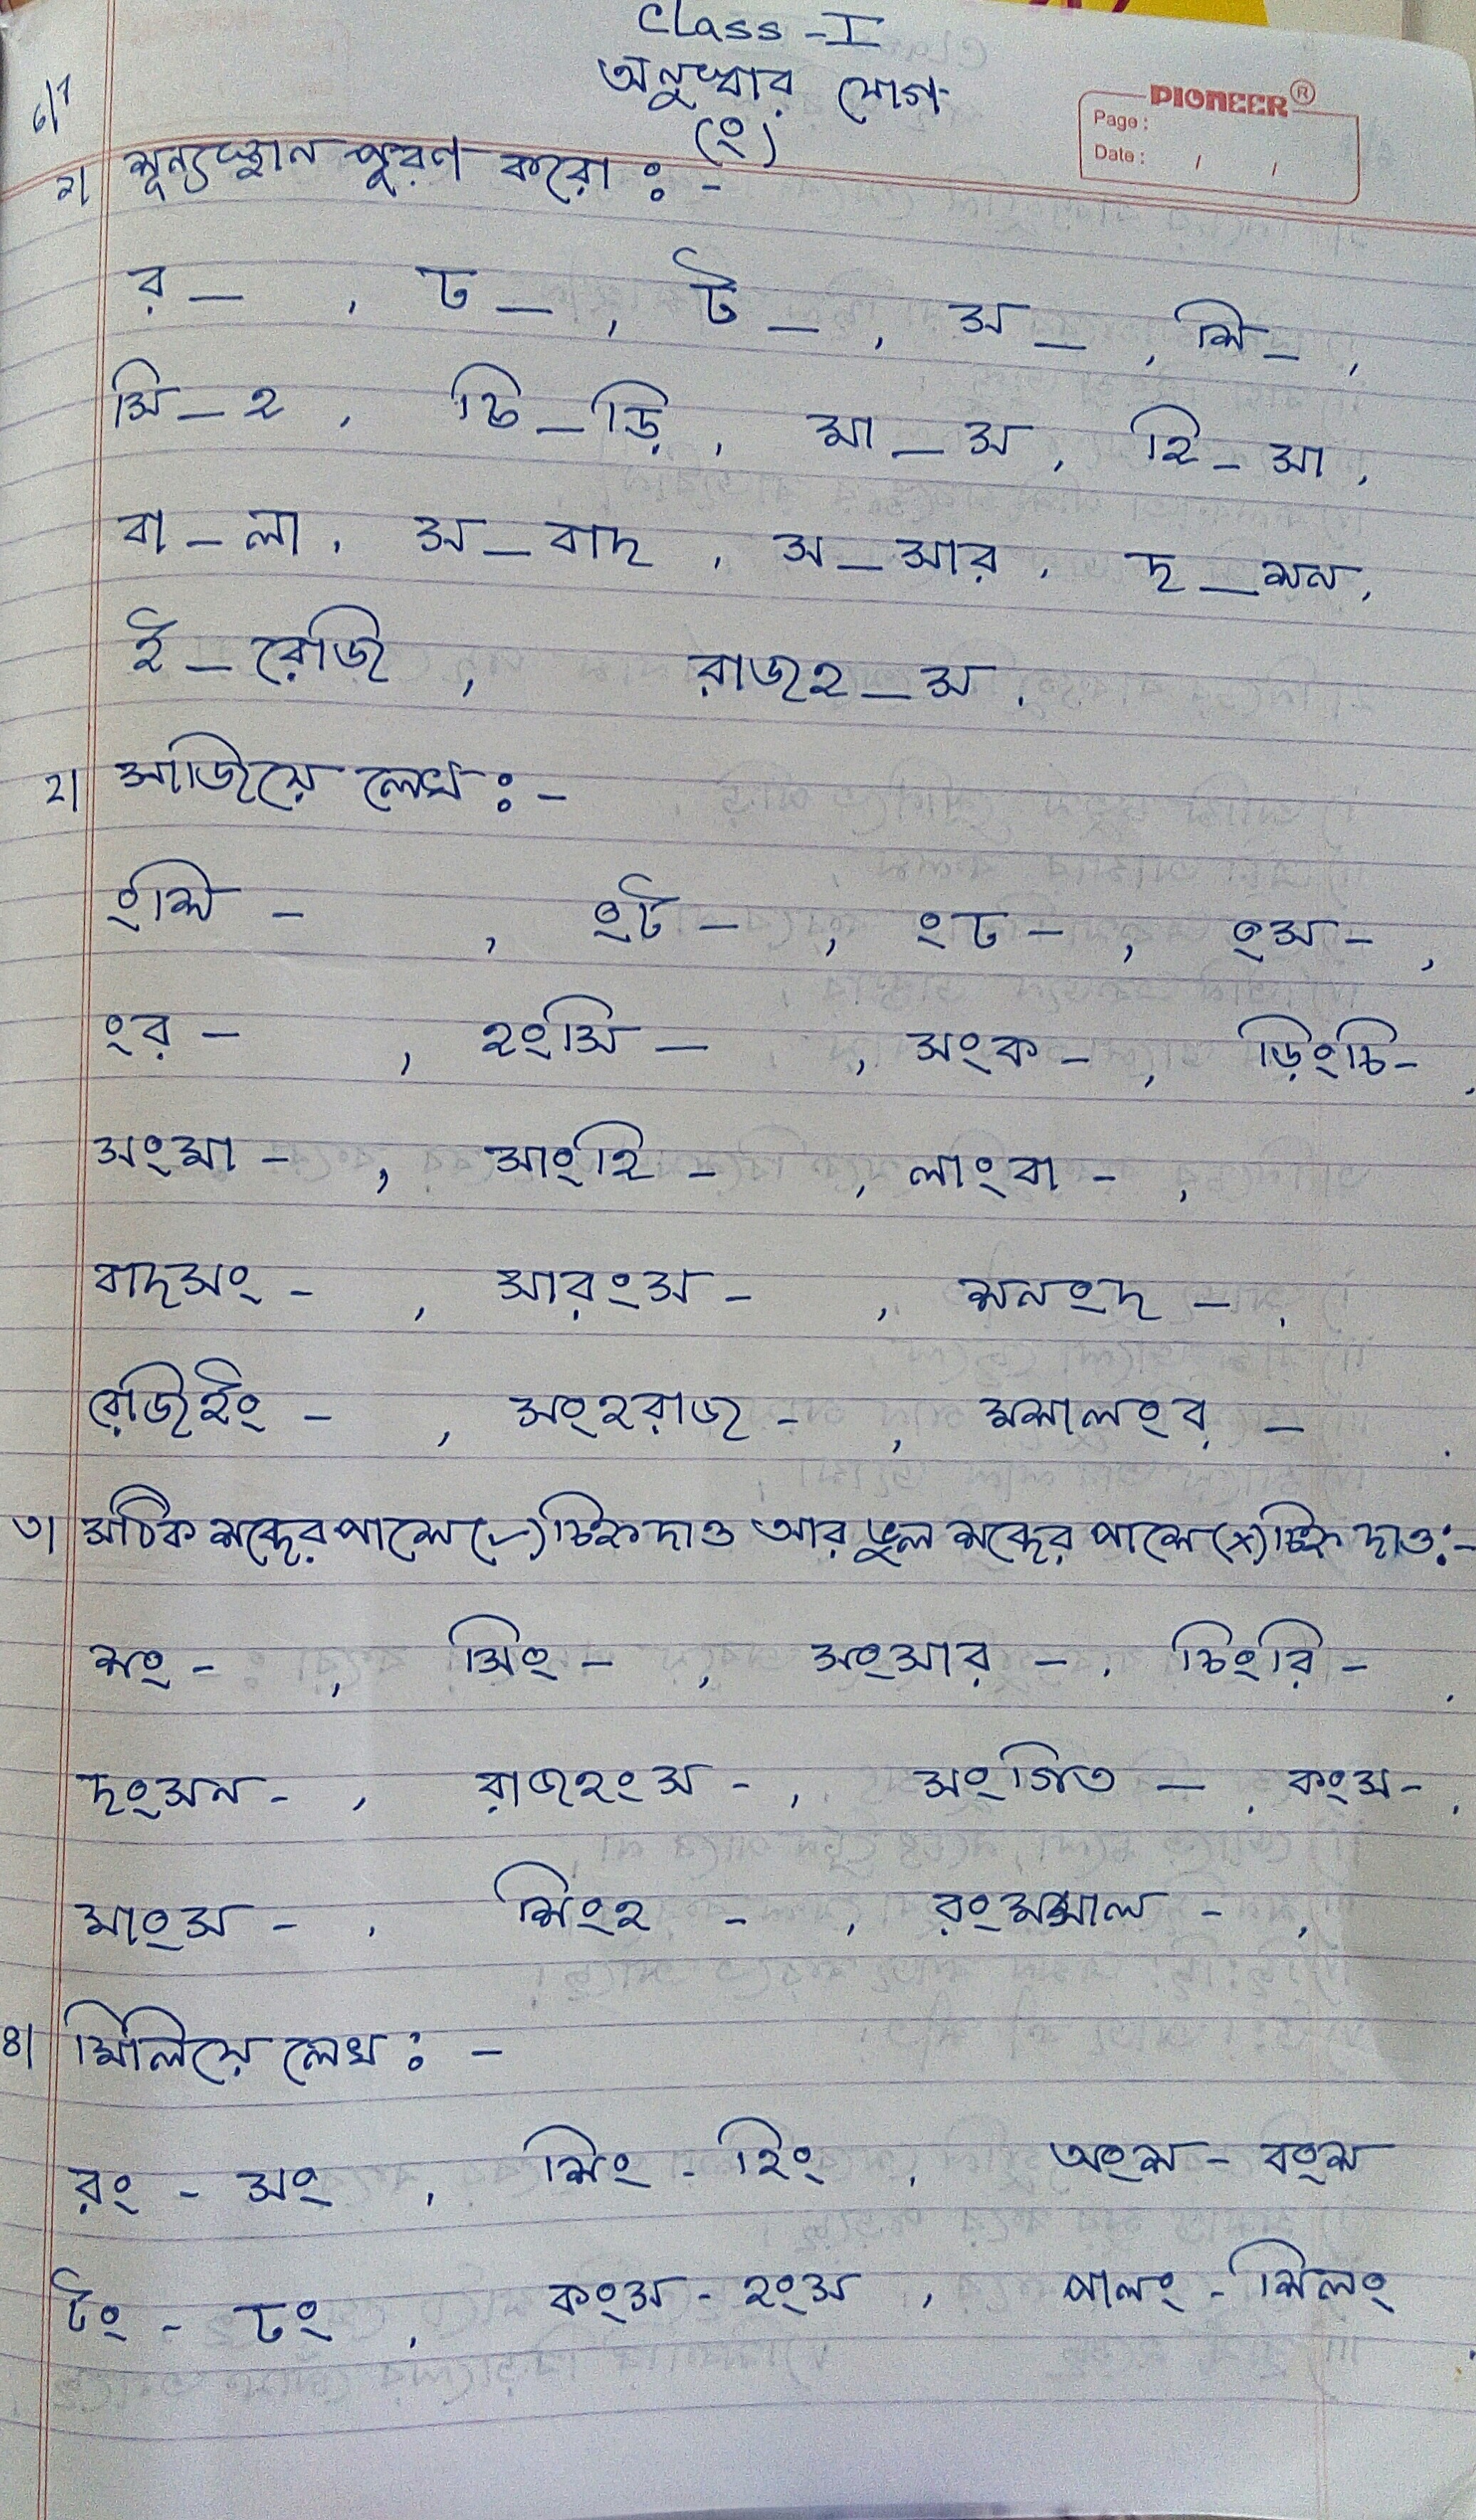 Class - I
অনুস্বার যোগ
(ং)
PIONEER®
Page:
Date: / /
৬/১
১। শূন্যস্থান পূরণ করো :-
র _ , ঢ _ , ট _ , স _ , শি _ ,
সি _ হ , চি _ ড়ি , মা _ স , হি _ সা ,
বা _ লা , স _ বাদ , স _ সার , দ _ শন ,
ই _ রেজি , রাজহ _ স .
২। সাজিয়ে লেখ :-
ংশি - , ংট - , ংঢ - , ংস - ,
ংর - , হংসি - , সংক - , ড়িংচি - ,
সংমা - , সাংহি - , লাংবা - ,
বাদসং - , সারংস - , শনংদ - ,
রেজিইং - , সংহরাজ - , মশালংর - .
৩। সঠিক শব্দের পাশে (✓) চিহ্ন দাও আর ভুল শব্দের পাশে (×) চিহ্ন দাও :-
শং - , সিং - , সংসার - , চিংরি - ,
দংসন - , রাজহংস - , সংগিত - , কংস - ,
মাংস - , শিংহ - , রংমশাল - ,
৪। মিলিয়ে লেখ : -
রং - সং , শিং - হিং , অংশ - বংশ
টং - ঢং , কংস - হংস , পালং - শিলং